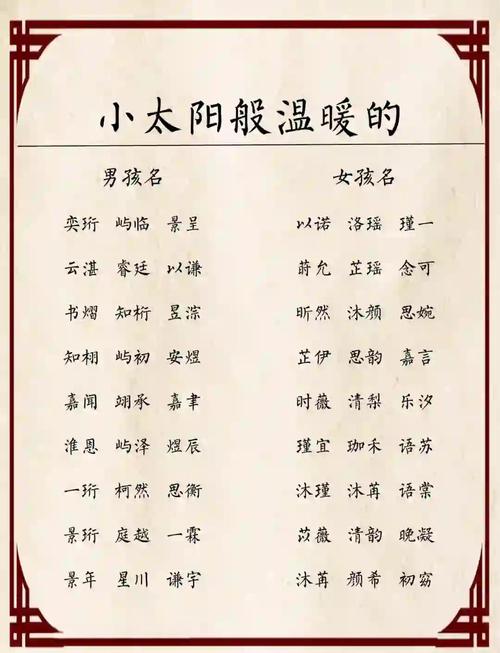 小太阳般温暖的
男孩名 女孩名
奕珩 屿临 景呈 以诺 洛瑶 瑾一
云湛 睿廷 以谦 蔚允 芷瑶 念可
书熠 知桁 昱淙 昕然 沐颜 思婉
知栩 屿初 安煜 芷伊 思韵 嘉言
嘉闻 翊承 嘉聿 时薇 清梨 乐汐
淮恩 屿泽 煜辰 瑾宜 珈禾 语苏
一珩 柯然 思衡 沐瑾 沐苒 语棠
景珩 庭越 一霖 苡薇 清韵 晚凝
景年 星川 谦宇 沐苒 颜希 初窈